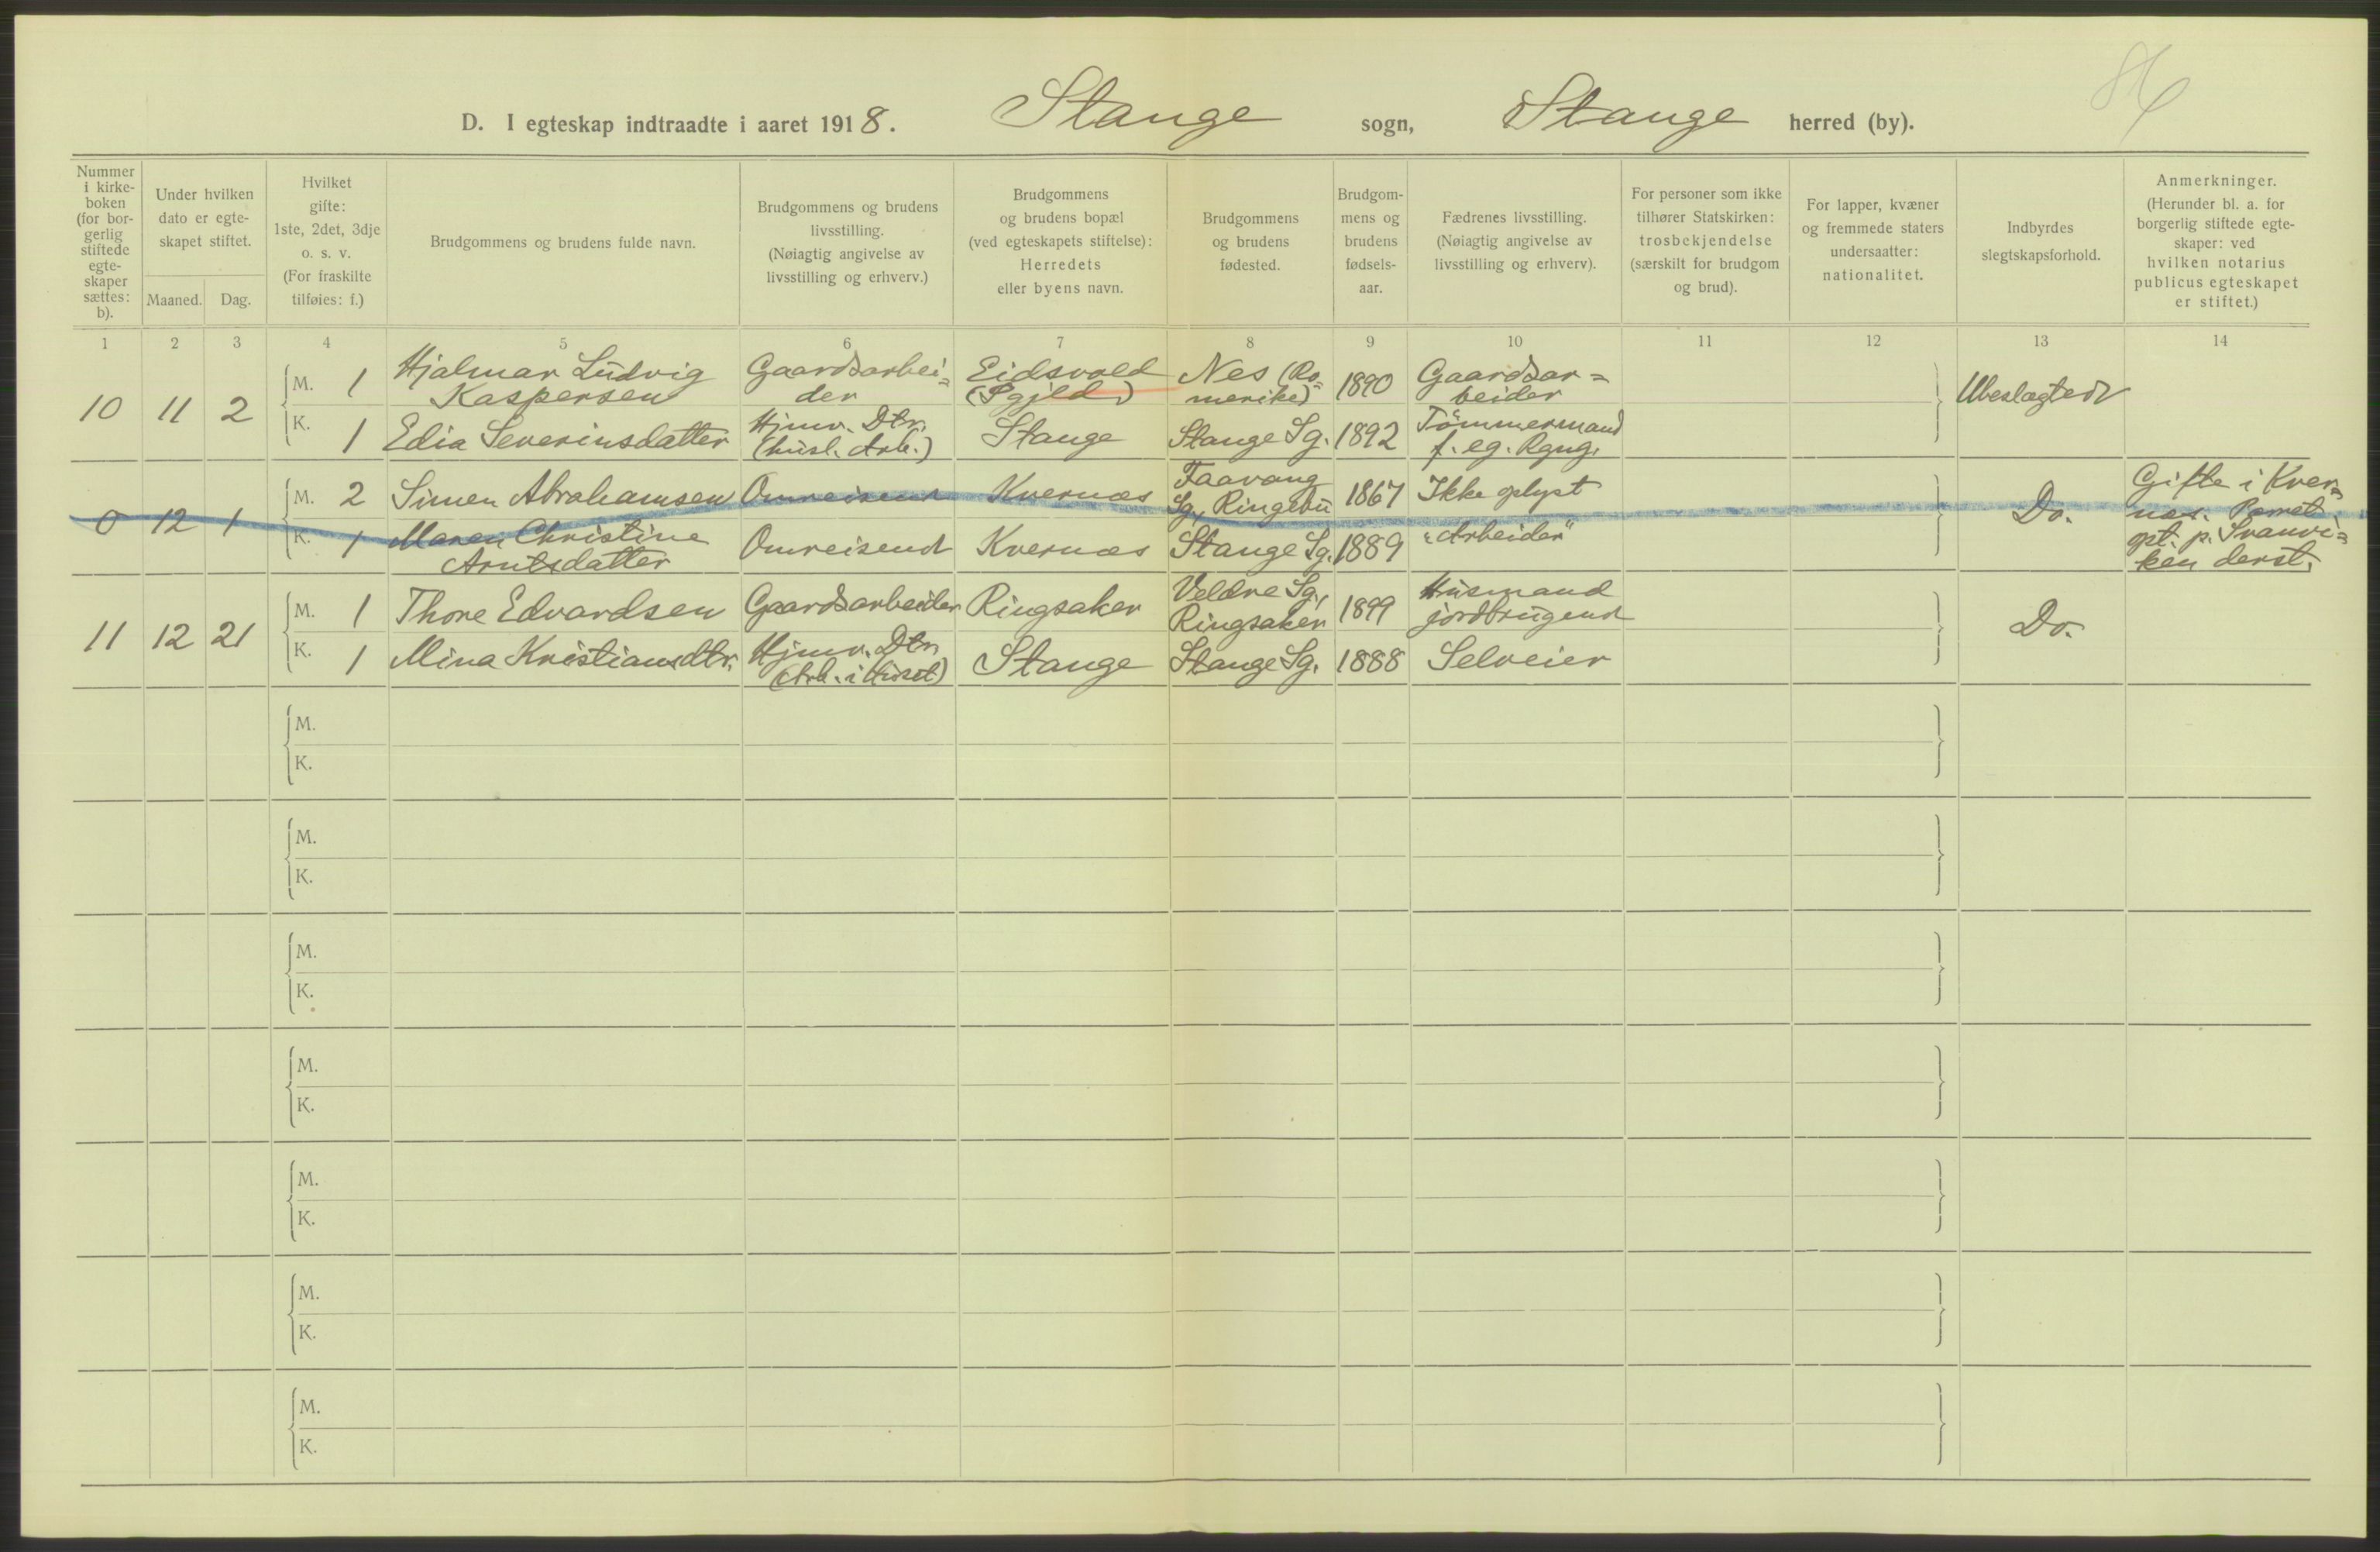 86
D. I egteskap indtraadte i aaret 1918. Stange sogn, Stange herred (by).
Nummer
i kirke-
boken
(for bor-
gerlig
stiftede
egte-
skaper
sættes:
b).
Under hvilken
dato er egte-
skapet stiftet.
Maaned. Dag.
Hvilket
gifte:
1ste, 2det, 3dje
o. s. v.
(For fraskilte
tilføies: f.)
Brudgommens og brudens fulde navn.
Brudgommens og brudens
livsstilling.
(Nøiagtig angivelse av
livsstilling og erhverv.)
Brudgommens
og brudens bopæl
(ved egteskapets stiftelse):
Herredets
eller byens navn.
Brudgommens
og brudens
fødested.
Brudgom-
mens og
brudens
fødsels-
aar.
Fædrenes livsstilling.
(Nøiagtig angivelse av
livsstilling og erhverv).
For personer som ikke
tilhører Statskirken:
trosbekjendelse
(særskilt for brudgom
og brud).
For lapper, kvæner
og fremmede staters
undersaatter:
nationalitet.
Indbyrdes
slegtskapsforhold.
Anmerkninger.
(Herunder bl. a. for
borgerlig stiftede egte-
skaper: ved
hvilken notarius
publicus egteskapet
er stiftet.)
1 2 3 4 5 6 7 8 9 10 11 12 13 14
10 11 2
M. 1
Hjalmar Ludvig
Kaspersen
Gaardsarbei=
der
Eidsvold
(Pgjeld)
Nes (Ro=
merike)
1890
Gaardsar=
beider
K. 1
Edia Severinsdatter
Hjmv. Dtr.
(husl. Arb.)
Stange
Stange Sg.
1892
Tömmermand
f. eg. Rgng.
Ubeslægted
0 12 1
M. 2
Simen Abrahamsen
Omreisend
Kvernæs
Faavang
Sg., Ringebu
1867
Ikke oplyst
K. 1
Maren Christine
Arntsdatter
Omreisend
Kvernæs
Stange Sg.
1889
"Arbeider"
Do.
Gifte i Kver=
næs.
opt. p. Svanvi=
ken derst.
11 12 21
M. 1
Thore Edvardsen
Gaardsarbeider
Ringsaker
Veldre Sg.,
Ringsaker
1899
Husmand
jordbrugend
K. 1
Mina Kristiansdtr.
Hjmv. Dtr.
(Arb. i Huset)
Stange
Stange Sg.
1888
Selveier
Do.
M.
K.
M.
K.
M.
K.
M.
K.
M.
K.
M.
K.
M.
K.